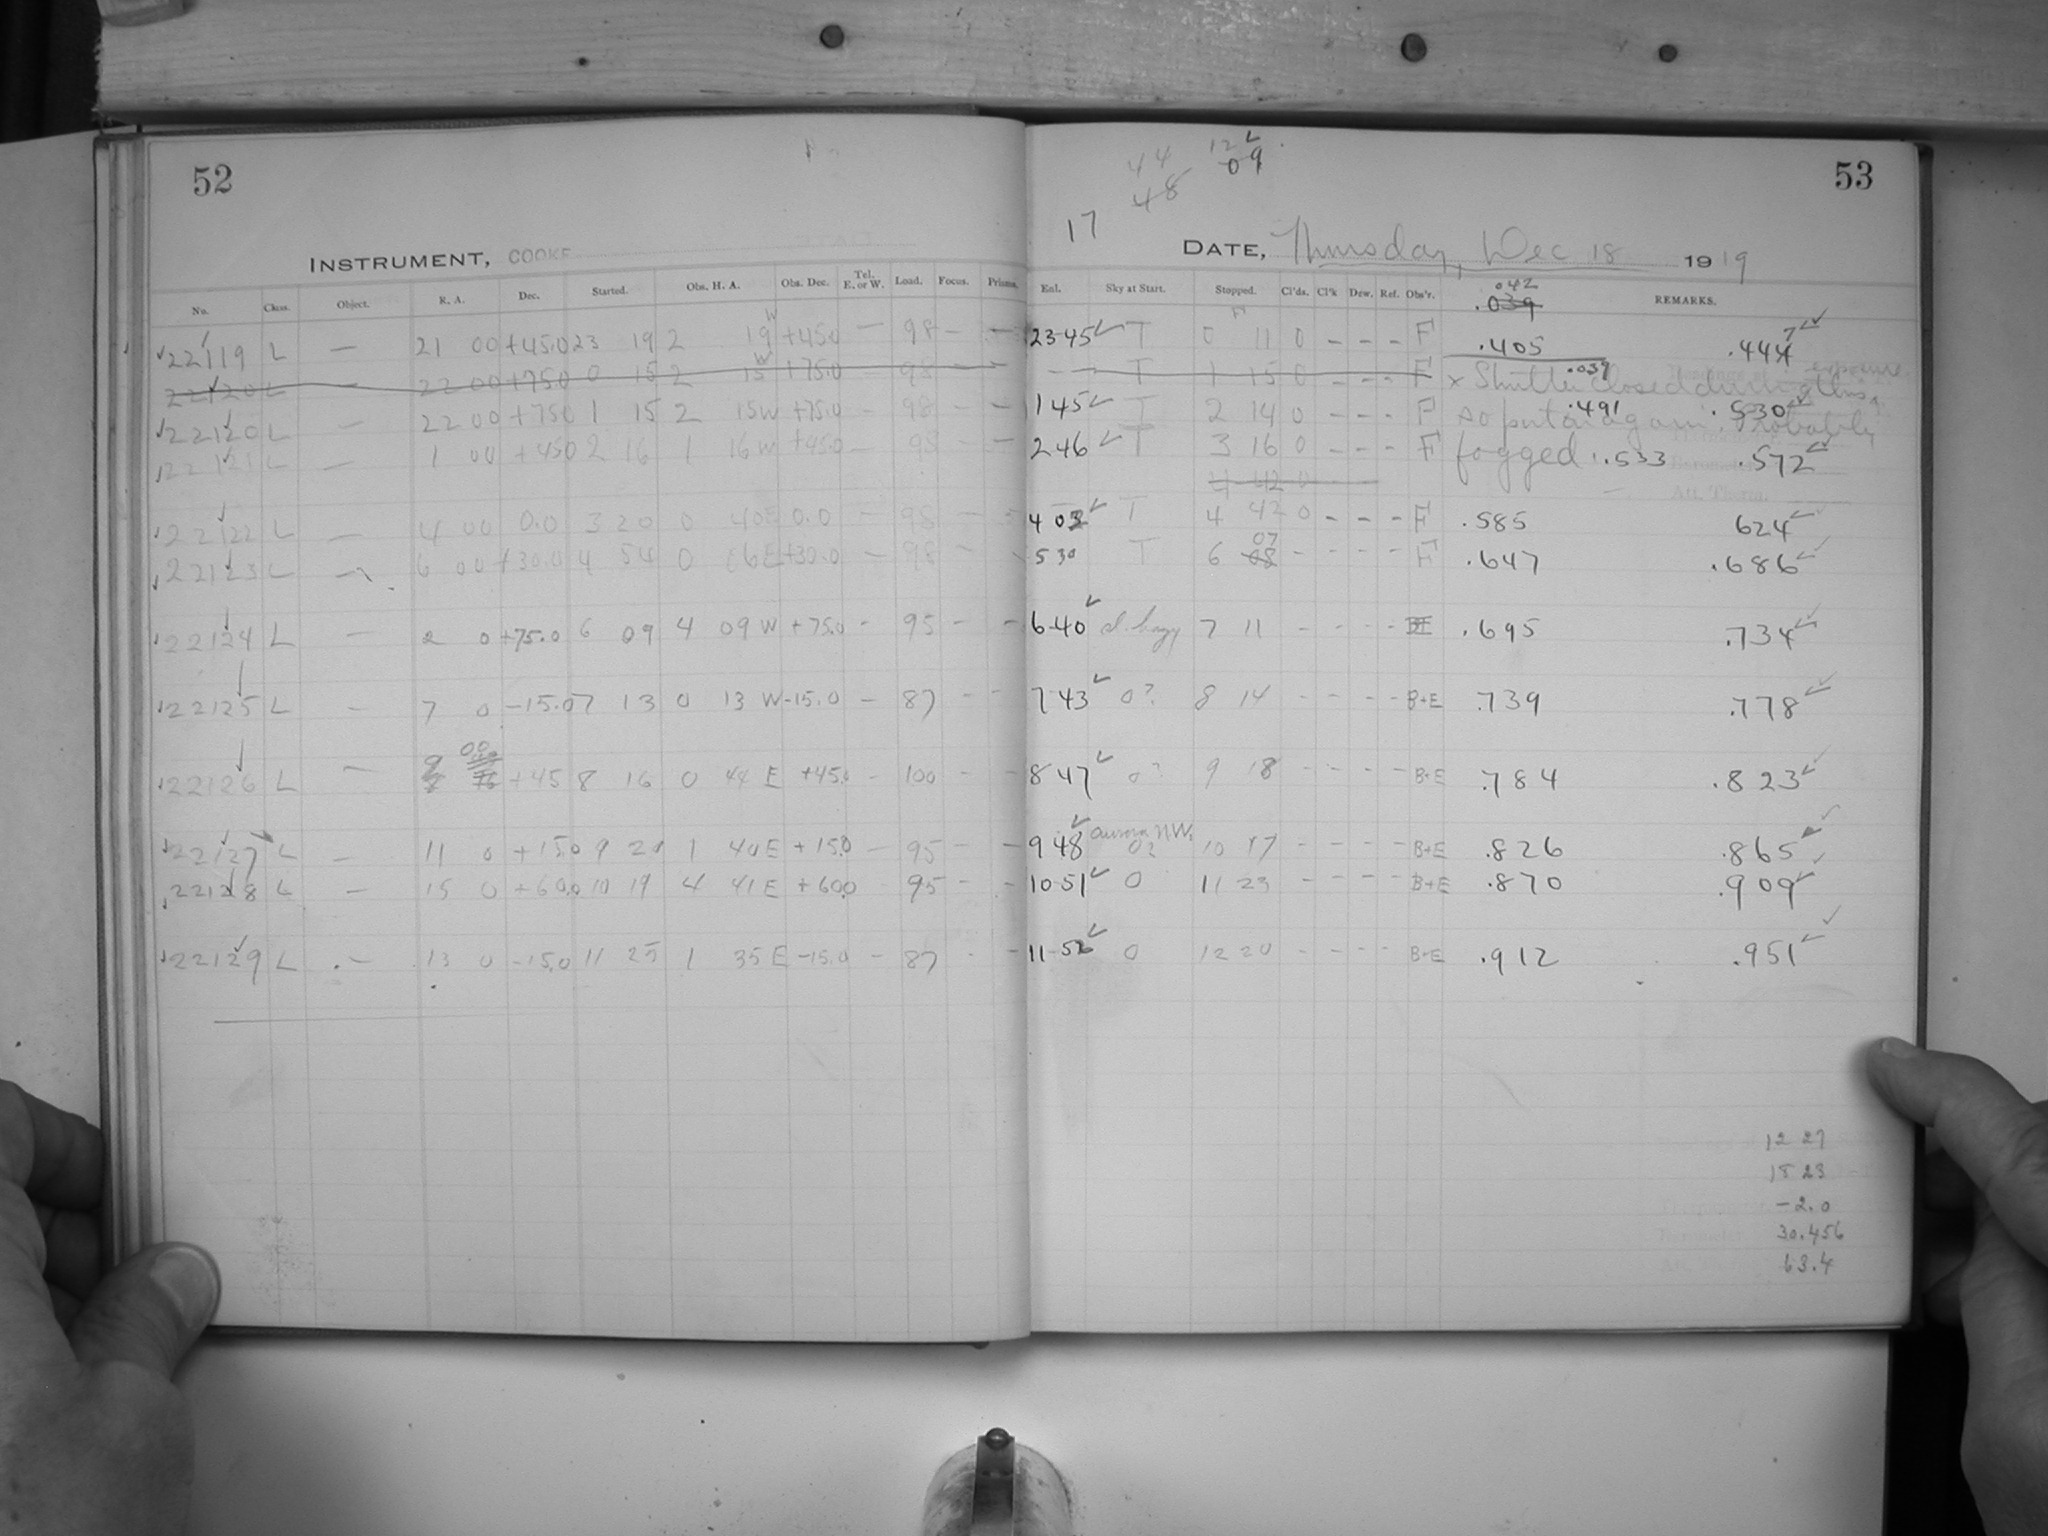 52
INSTRUMENT, COOKE
No. Class. Object. R. A. Dec. Started. Obs. H. A. Obs. Dec. Tel. E. or W. Load. Focus. Prisms.
22119 L — 21 00 +45.0 23 19 2 19 W +45.0 — 98 — —
22120 L — 22 00 +75.0 0 15 2 15 W +75.0 — 98 — —
22120 L — 22 00 +75.0 1 15 2 15 W +75.0 — 98 — —
22121 L — 1 00 +45.0 2 16 1 16 W +45.0 — 98 — —
22122 L — 4 00 0.0 3 20 0 40 E 0.0 — 98 —
22123 L — 6 00 +30.0 4 54 0 E +30.0 — 98 —
22124 L — 2 0 +75.0 6 09 4 09 W +75.0 - 95 - -
22125 L — 7 0 -15.0 7 13 0 13 W -15.0 — 87 - -
22126 L — 9 00 +45 8 16 0 44 E +45.0 - 100 - -
22127 L — 11 0 +15.0 9 20 1 40 E +15.0 — 95 - -
22128 L — 15 0 +60.0 10 19 4 41 E +60.0 — 95 - -
22129 L — 13 0 -15.0 11 25 1 35 E -15.0 - 87 - -
53
44 12
48 09
17
DATE, Thursday, Dec 18 1919
Eql. Sky at Start. Stopped. Cl'ds. Cl'k Dew. Ref. Obs'r. .042 .039 REMARKS.
23-45 T 0 11 0 - - - F .405 .444 7
- T 1 15 0 - - - F × Shutter closed during this exposure
.039
1 45 T 2 14 0 - - - F so put on again. Probably
.491 .530
2 46 T 3 16 0 - - - F fogged. .533 .572
4 42 0
4 03 T 4 42 0 - - - F .585 624
5 30 T 6 08 07 - - - - F .647 .686
6-40 S. hazy 7 11 - - - - .695 .734
7 43 0? 8 14 - - - - B+E .739 .778
8 47 0? 9 18 - - - - B+E .784 .823
9 48 aurora N.W. 0? 10 17 - - - - B+E .826 .865
10-51 0 11 23 - - - - B+E .870 .909
11-52 0 12 20 - - - - B+E .912 .951
12 27
18 23
-2.0
30.456
63.4